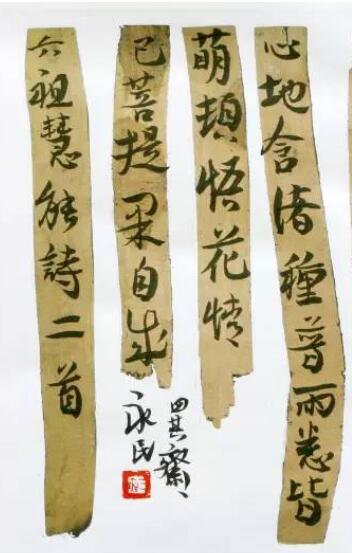 心地含诸種普雨悉皆
萌頓悟花情
已菩提果自成
六祖慧能詩二首
齋
永民